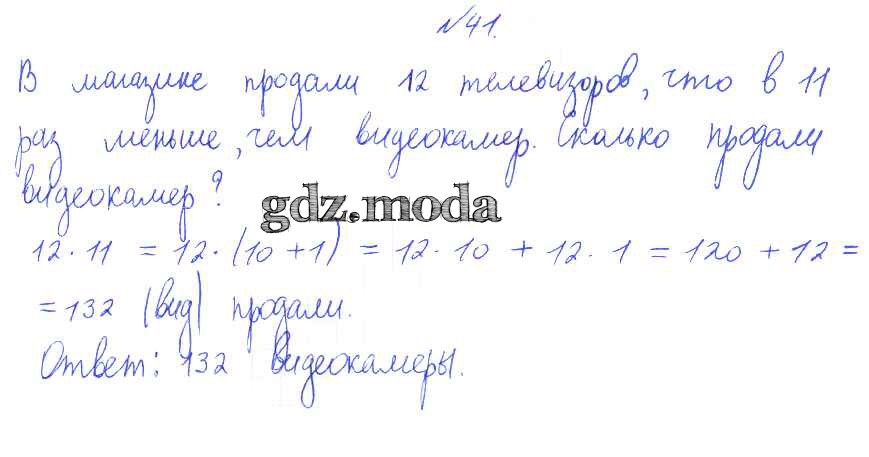 №41.
В магазине продали 12 телевизоров, что в 11
раз меньше, чем видеокамер. Сколько продали
видеокамер?
gdz.moda
12 · 11 = 12 · (10 + 1) = 12 · 10 + 12 · 1 = 120 + 12 =
= 132 (вид) продали.
Ответ: 132 видеокамеры.